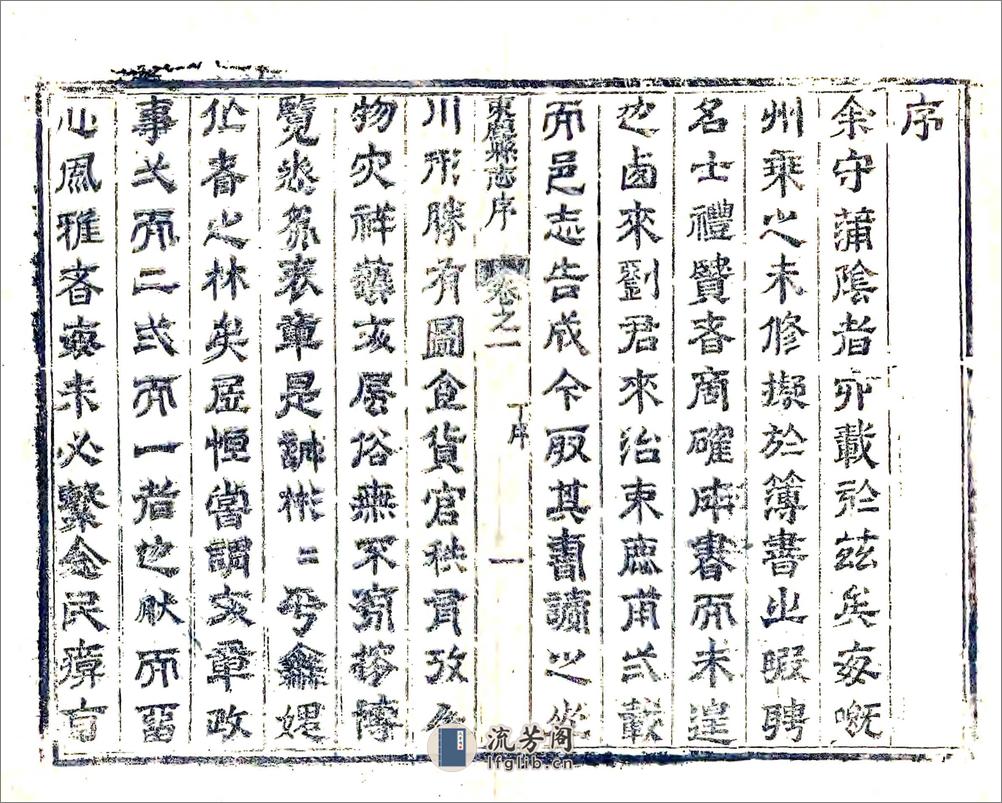 序
余守蒲陰者載於茲矣每嘅
州乘之未修擬於簿書之暇聘
名士禮賢者商確成書而未遑
也鹵來劉君來治束鹿甫弍載
而邑志告成今取其書讀之
束鹿縣志序 卷之一 序 一
川形勝有圖食貨官秩有攷人
物灾祥藝文風俗無不窮搜博
覽悉表章是誠彬二乎媲
作者之林矣居恒嘗謂文章政
事弌而二弍而一者也然而習
心風雅者每未必繫念民瘼
流芳阁
lfglib.cn